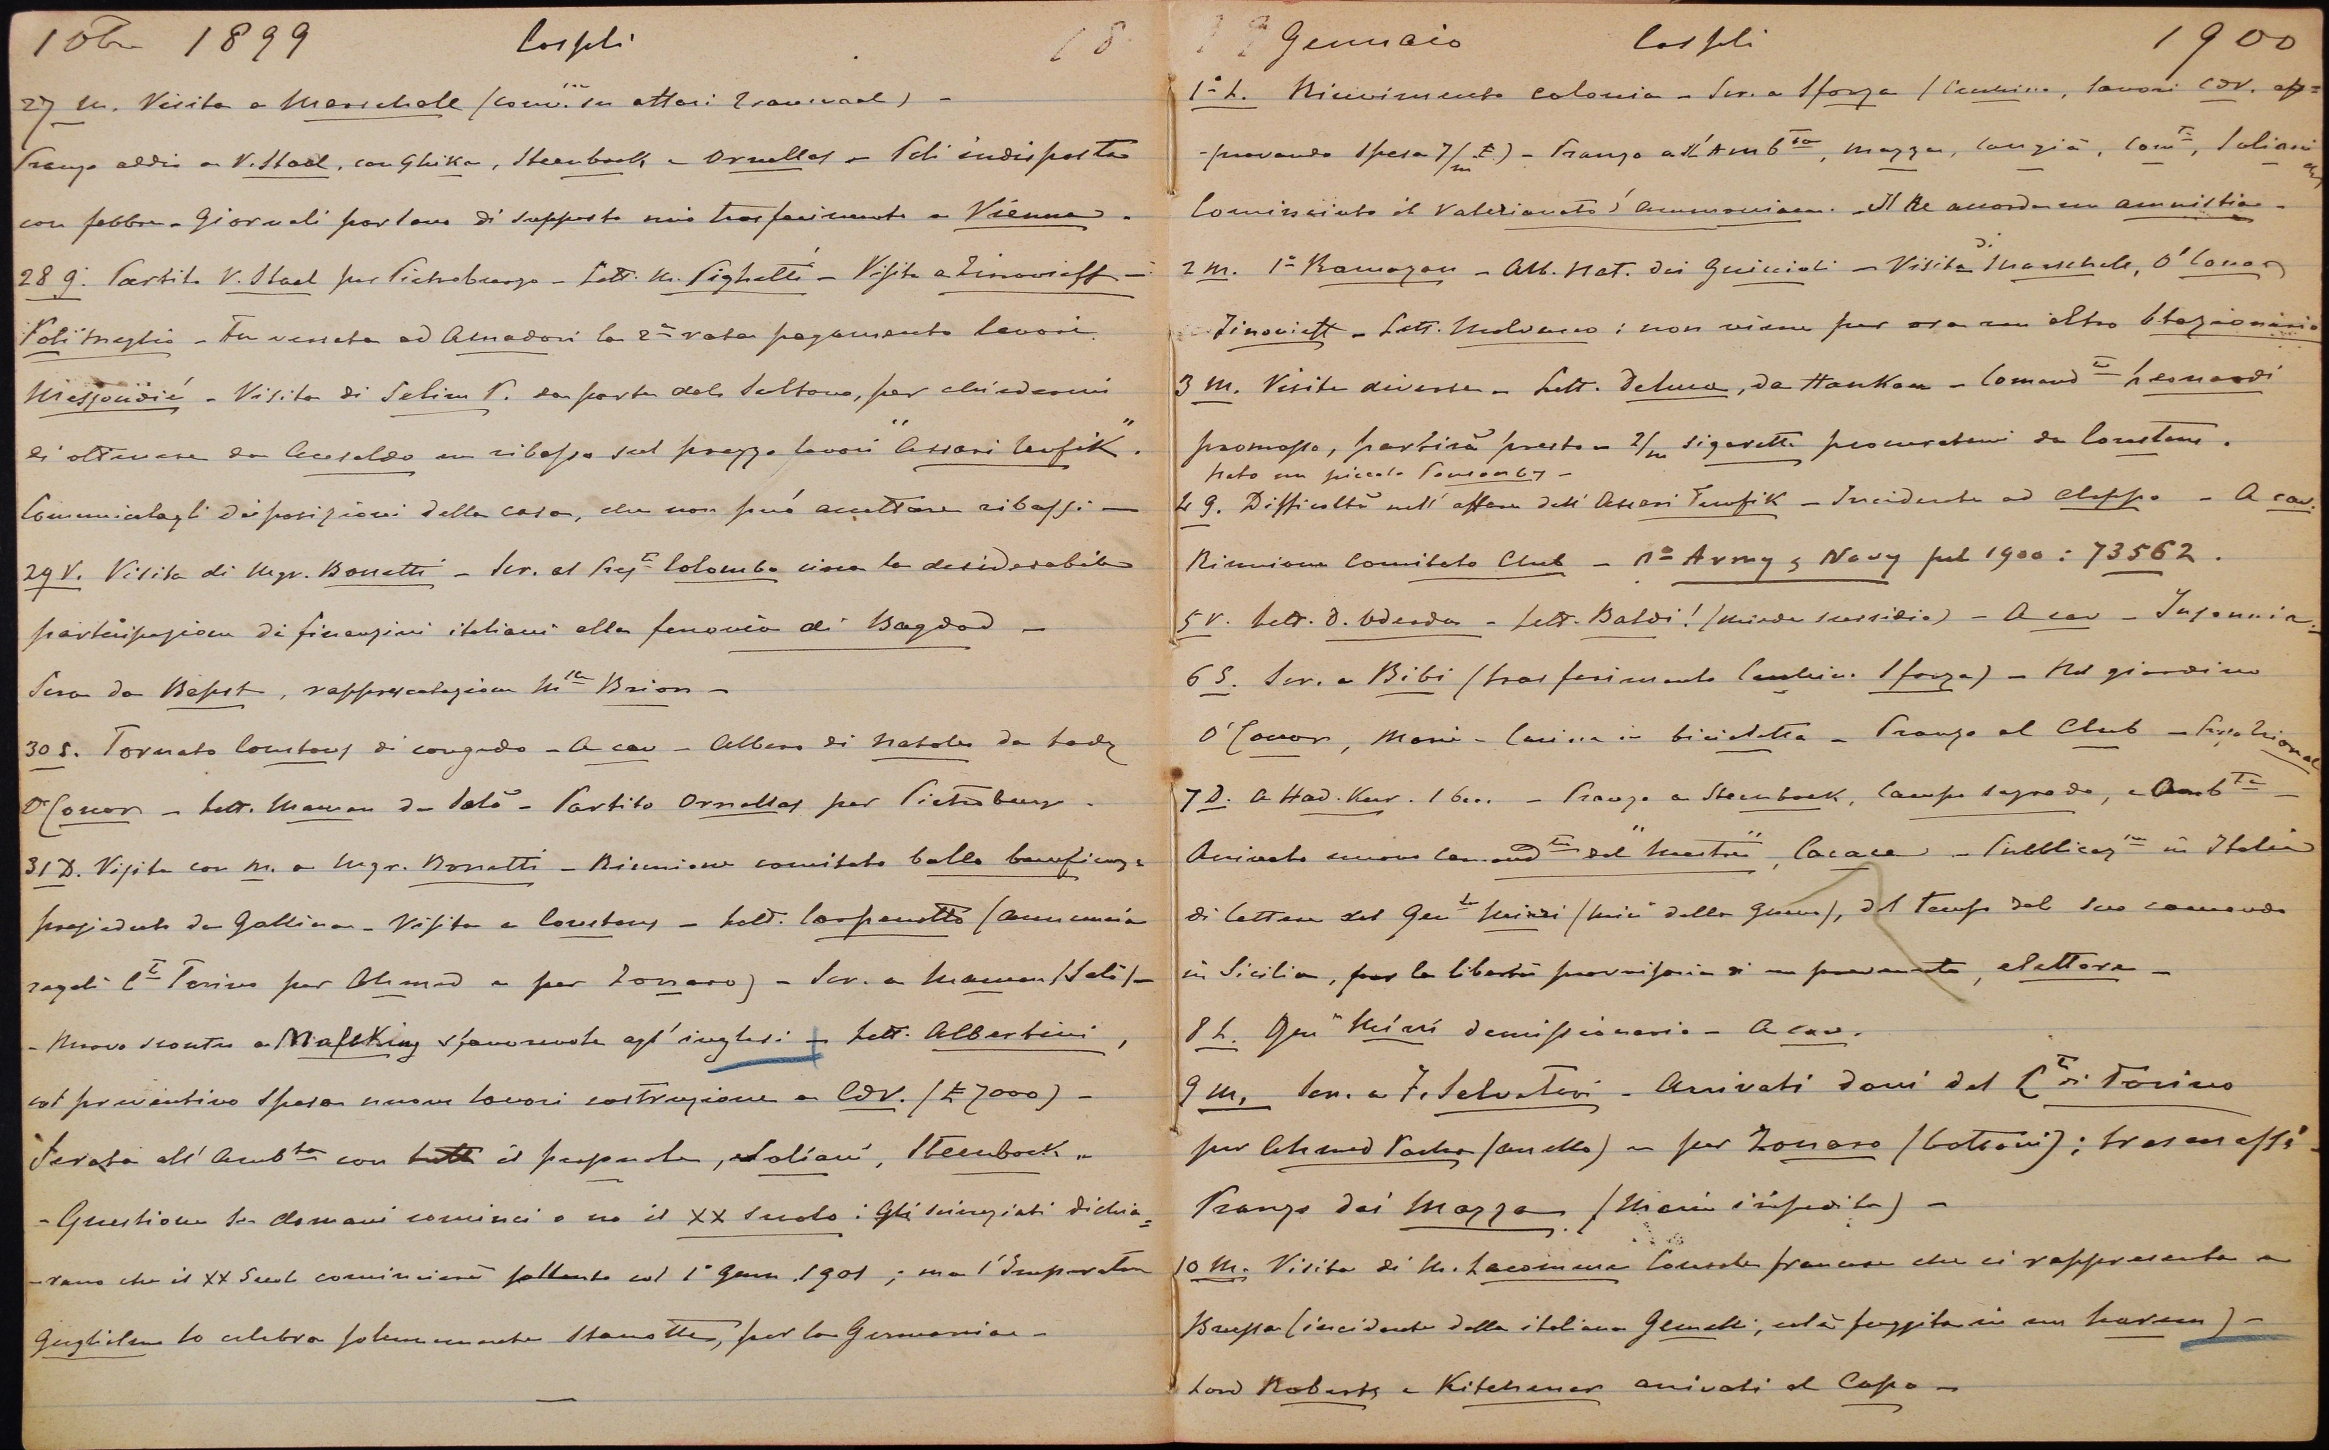 10bre 1899 Cospoli 18
27 M. Visita a Marschall (comuni su affari Transvaal) -
Pranzo addio a V. Staal, con Ghika, Steenbock, a Ornellas - Poli indisposta
con febbre - Giornali parlano di supposto mio trasferimento a Vienna.
28 g. Partito V. Staal per Pietroburgo - Lett. M. Pighetti - Visita a Zinovieff -
Poli meglio - Fu versata ad Amadori la 2ª rata pagamento lavori
Messoudié - Visita di Selim P. da parte del Sultano, per chiedermi
di ottenere da Ansaldo un ribasso sul prezzo lavori "Assari Tewfik".
Comunicatagli disposizioni della casa, che non può accettare ribassi -
29 V. Visita di Mgr. Bonetti - Scr. al Preste Colombo circa la desiderabile
partecipazione di finanzieri italiani alla ferrovia di Bagdad -
Sera da Bapst, rappresentazione Mlle Brion -
30 S. Tornato Constans di congedo - A cav - Albero di Natale da Lady
O'Conor - Lett. Maman da Salò - Partito Ornellas per Pietroburgo -
31 D. Visita con M. a Mgr. Bonetti - Riunione comitato ballo beneficenza
presieduto da Gallina - Visita a Constans - Lett. Carpanetto (annuncia
regali Cte Torino per Ahmed e per Zonaro) - Scr. a Maman (Salò) -
- Nuovo scontro a Mafeking sfavorevole agl'inglesi - Lett. Albertini,
col preventivo spesa nuovi lavori costruzione a CDV. (₤ 7000) -
Serata all'Ambta con tutto il personale, Soliani, Steenbock -
- Questione se domani cominci o no il XX secolo: Gli scienziati dichia=
-rano che il XX Secolo comincierà soltanto col 1° Genn. 1901; ma l'Imperatore
Guglielmo lo celebra solennemente stanotte, per la Germania -
19 Gennaio Cospoli 1900
1° L. Ricevimento colonia - Scr. a Sforza (Cecchino, lavori CDV. ap=
-provando spesa 7/m ₤) - Pranzo all'Ambta, Mazza, Cangià, Comte, Soliani
Cominciato il Valerianato d'ammoniaca - Il Re accorda un amnistia -
2 M. 1° Ramazan - Alb. Nat. dei Guiccioli - Visita di Marschall, O'Conor
Zinovieff - Lett. Malvano: non viene per ora un altro Stazionario
3 M. Visite diverse - Lett. Deluca, da Hankau - Comandte Leonardi
promosso, partirà presto - 2/m sigarette procuratemi da Constans.
Nato un piccolo Ponsonby -
4 g. Difficoltà nell'affare dell'Assari Tewfik - Incidente ad Aleppo - A cav.
Riunione Comitato Club - N° Army & Navy pel 1900: 73562.
5 V. Lett. D. - Lett. Baldi! (chiede sussidio) - A cav - Insonnia.
6 S. Scr. a Bibi (trasferimento Cecchino Sforza) - Nel giardino
O'Conor, Marie - Corina in bicicletta - Pranzo al Club -
7 D. A Had. Keur. - Pranzo a Steenbock, Campo Sagrado, a Ambta -
Arrivato nuovo comandte del "Mestre", Cacace - Pubblicazne in Italia
di lettere del Genle Mirri (Mino della Guerra), del tempo del suo comando
in Sicilia, per la libertà provvisoria di un prevenuto, elettore -
8 L. Genle Mirri demissionario - A cav.
9 M. Scr. a F. Salvatori - Arrivati doni del Cte di Torino
per Ahmed Pacha (anello) e per Zonaro (bottoni); trasmessi -
Pranzo dai Mazza (Marie impedita) -
10 M. Visita di M. Lacomme Console francese che ci rappresenta a
Brussa (incidente della italiana Gemelli, colà fuggita in un harem) -
Lord Roberts e Kitchener arrivati al Capo -